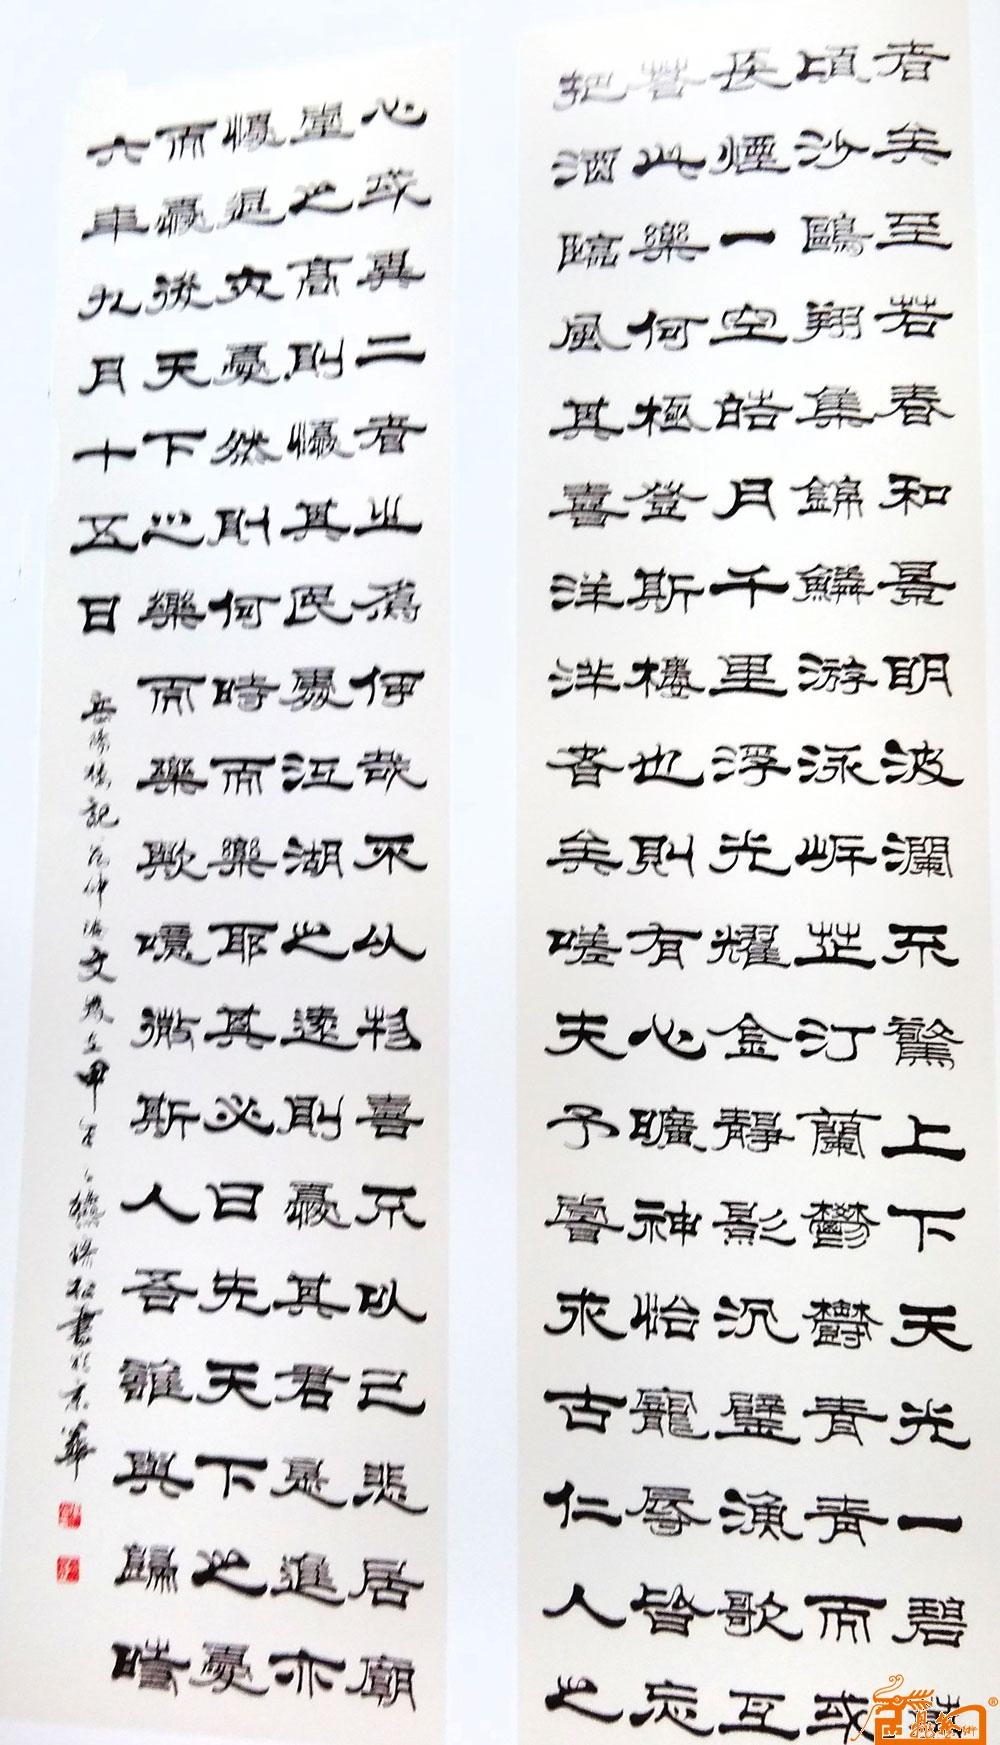 者矣至若春和景明波瀾不驚上下天光一碧萬
頃沙鷗翔集錦鱗游泳岸芷汀蘭鬱鬱青青而或
長煙一空皓月千里浮光耀金靜影沉璧漁歌互
答此樂何極登斯樓也則有心曠神怡寵辱皆忘
把酒臨風其喜洋洋者矣嗟夫予嘗求古仁人之
心或異二者之為何哉不以物喜不以己悲居廟
堂之高則憂其民處江湖之遠則憂其君是進亦
憂退亦憂然則何時而樂耶其必曰先天下之憂
而憂後天下之樂而樂歟噫微斯人吾誰與歸時
六年九月十五日
岳陽樓記范仲淹文歲在甲午 書於京華